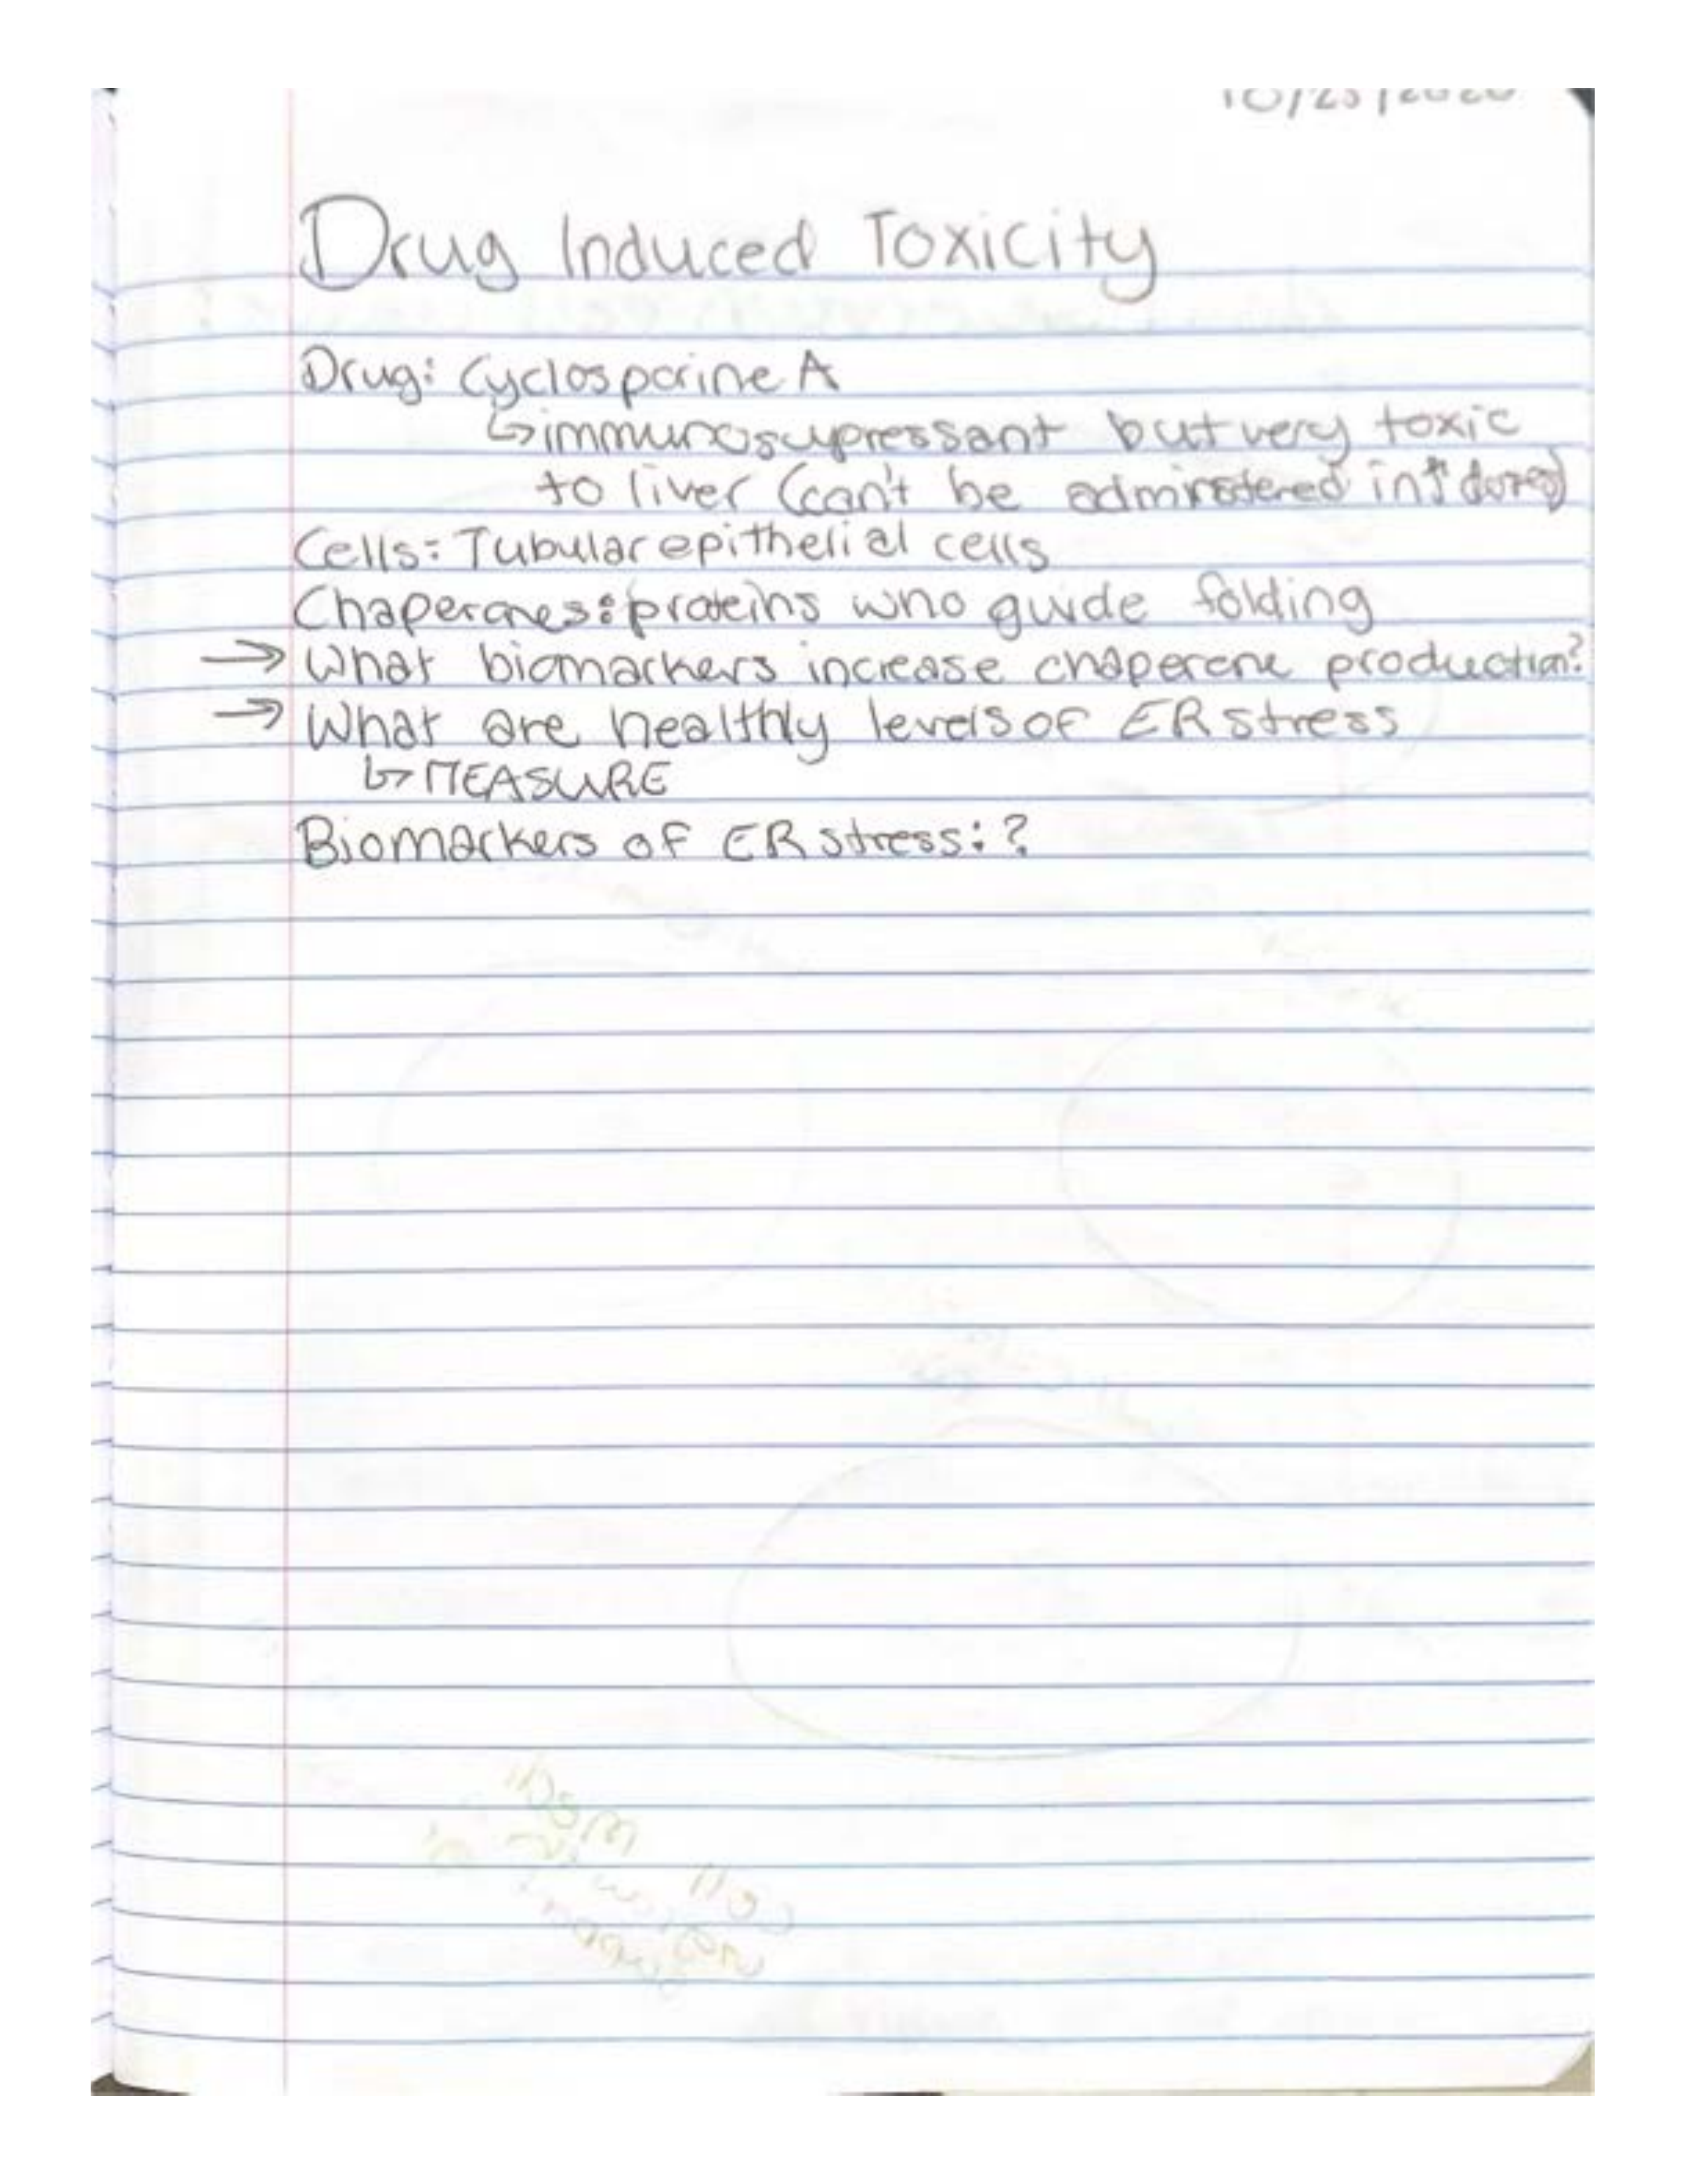 10/23/2020
Drug Induced Toxicity
Drug: Cyclosporine A
↳immunosupressant but very toxic
to liver (can't be adminstered in ↑ doses)
Cells: Tubular epithelial cells
Chaperones: proteins who guide folding
→ What biomarkers increase chaperone production?
→ What are healthly levels of ER stress
↳ MEASURE
Biomarkers of ER stress: ?